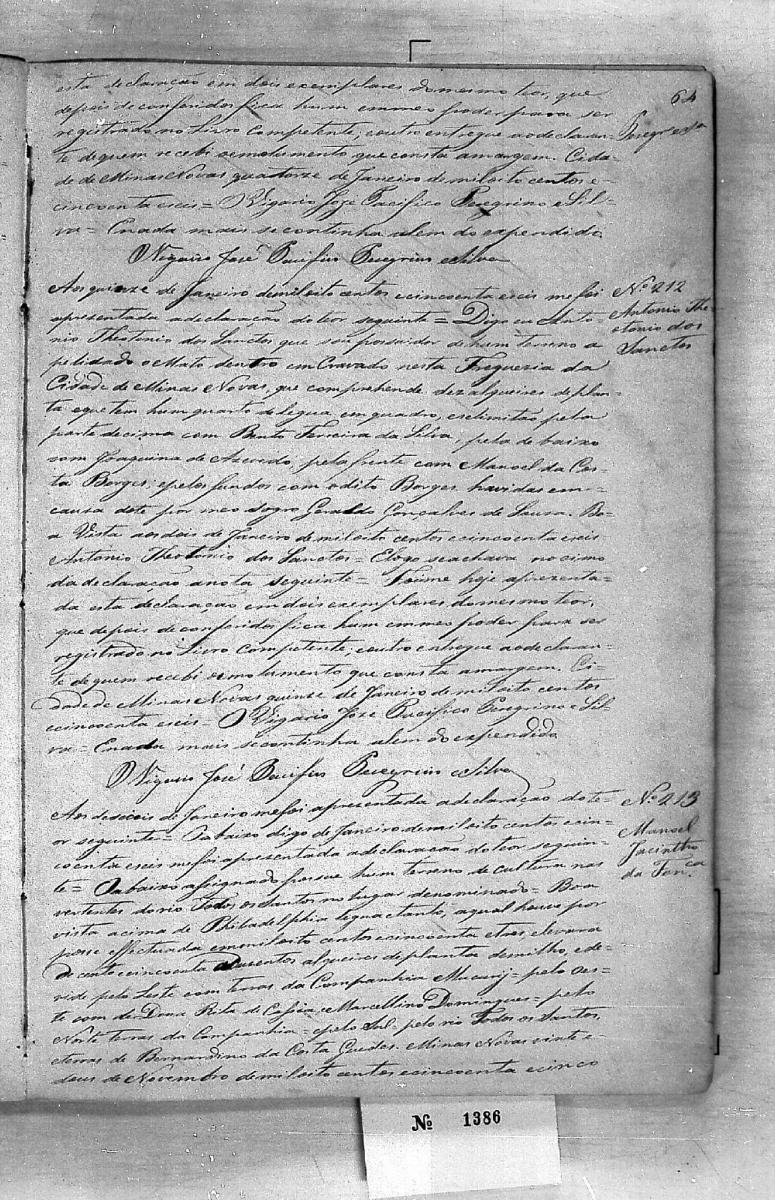 64
esta declaração em dois exemplares do mesmo teor, que
depois de conferidos fica hum em meo poder para ser
registrado no Livro Competente, e outro entregue ao declaran-
te de quem recebi o emolumento que consta amargem. Cida-
de de Minas Novas quatorze de Janeiro de mil oito centos e
cincoenta e seis = O Vigario Joze Pacifico Peregrino e Sil-
va = Enada mais se continha alem do expendido.
O Vigario José Pacifico Peregrino e Silva
Nº 212
Antonio The-
otonio dos
Sanctos
Aos quinze de Janeiro de mil oito centos e cincoenta e seis me foi
apresentada a declaração do teor seguinte = Digo eu Anto-
nio Theotonio dos Sanctos que sou possuidor de hum terreno a
pelidado o Mato dentro em Cravado nesta Freguezia da
Cidade de Minas Novas, que comprehende dez alqueires de plan-
ta e que tem hum quarto de legua em quadro, e se limitão pela
parte de cima com Bento Ferreira da Silva, pela de baixo
com Joaquina de Azevedo, pela frente com Manoel da Cos-
ta Borges; e pelos fundos com o dito Borges, havidas em
causa dote por meo sogro Geraldo Gonçalves de Sousa. Bo-
a Vista aos dois de Janeiro de mil oito centos e cincoenta e seis
Antonio Theotonio dos Sanctos = E logo se achava no cimo
da declaração a nota seguinte = Foi me hoje aprezenta-
da esta declaração em dois exemplares do mesmo teor,
que depois de conferidos fica hum em meo poder para ser
registrado no Livro Competente, e outro entregue ao declaran-
te de quem recebi o emolumento que consta amargem. Ci-
dade de Minas Novas quinse de Janeiro de mil oito centos
e cincoenta e seis = O Vigario Joze Pacifico Peregrino e Sil-
va = Enada mais se continha alem do expendido
O Vigario José Pacifico Peregrino e Silva
Nº 213
Manoel
Jacintho
da Fonca.
Aos deseseis de Janeiro me foi apresentada a declaração do te-
or seguinte = O abaixo digo de Janeiro de mil oito centos e cin-
coenta e seis me foi apresentada a declaração do teor seguin-
te = O abaixo assignado possue hum terreno de cultura nas
vertentes do rio Todos os Santos no lugar denominado = Boa
vista acima de Philadelphia legua e tanto, a qual houve por
posse effectuada em mil oito centos e cincoenta e tres, e levara
de cento e cincoenta a dusentos alqueires de planta de milho, e de-
vide pelo Leste com terras da Companhia Mucury = pelo Oes-
te com de Dona Rita de Cassia, e Marcellino Domingues = pelo
Norte terras da Companhia = e pelo Sul pelo rio Todos os Santos,
e terras de Bernardino da Costa Guedes. Minas Novas vinte e
dous de Novembro de mil oito centos e cincoenta e cinco
Nº 1386